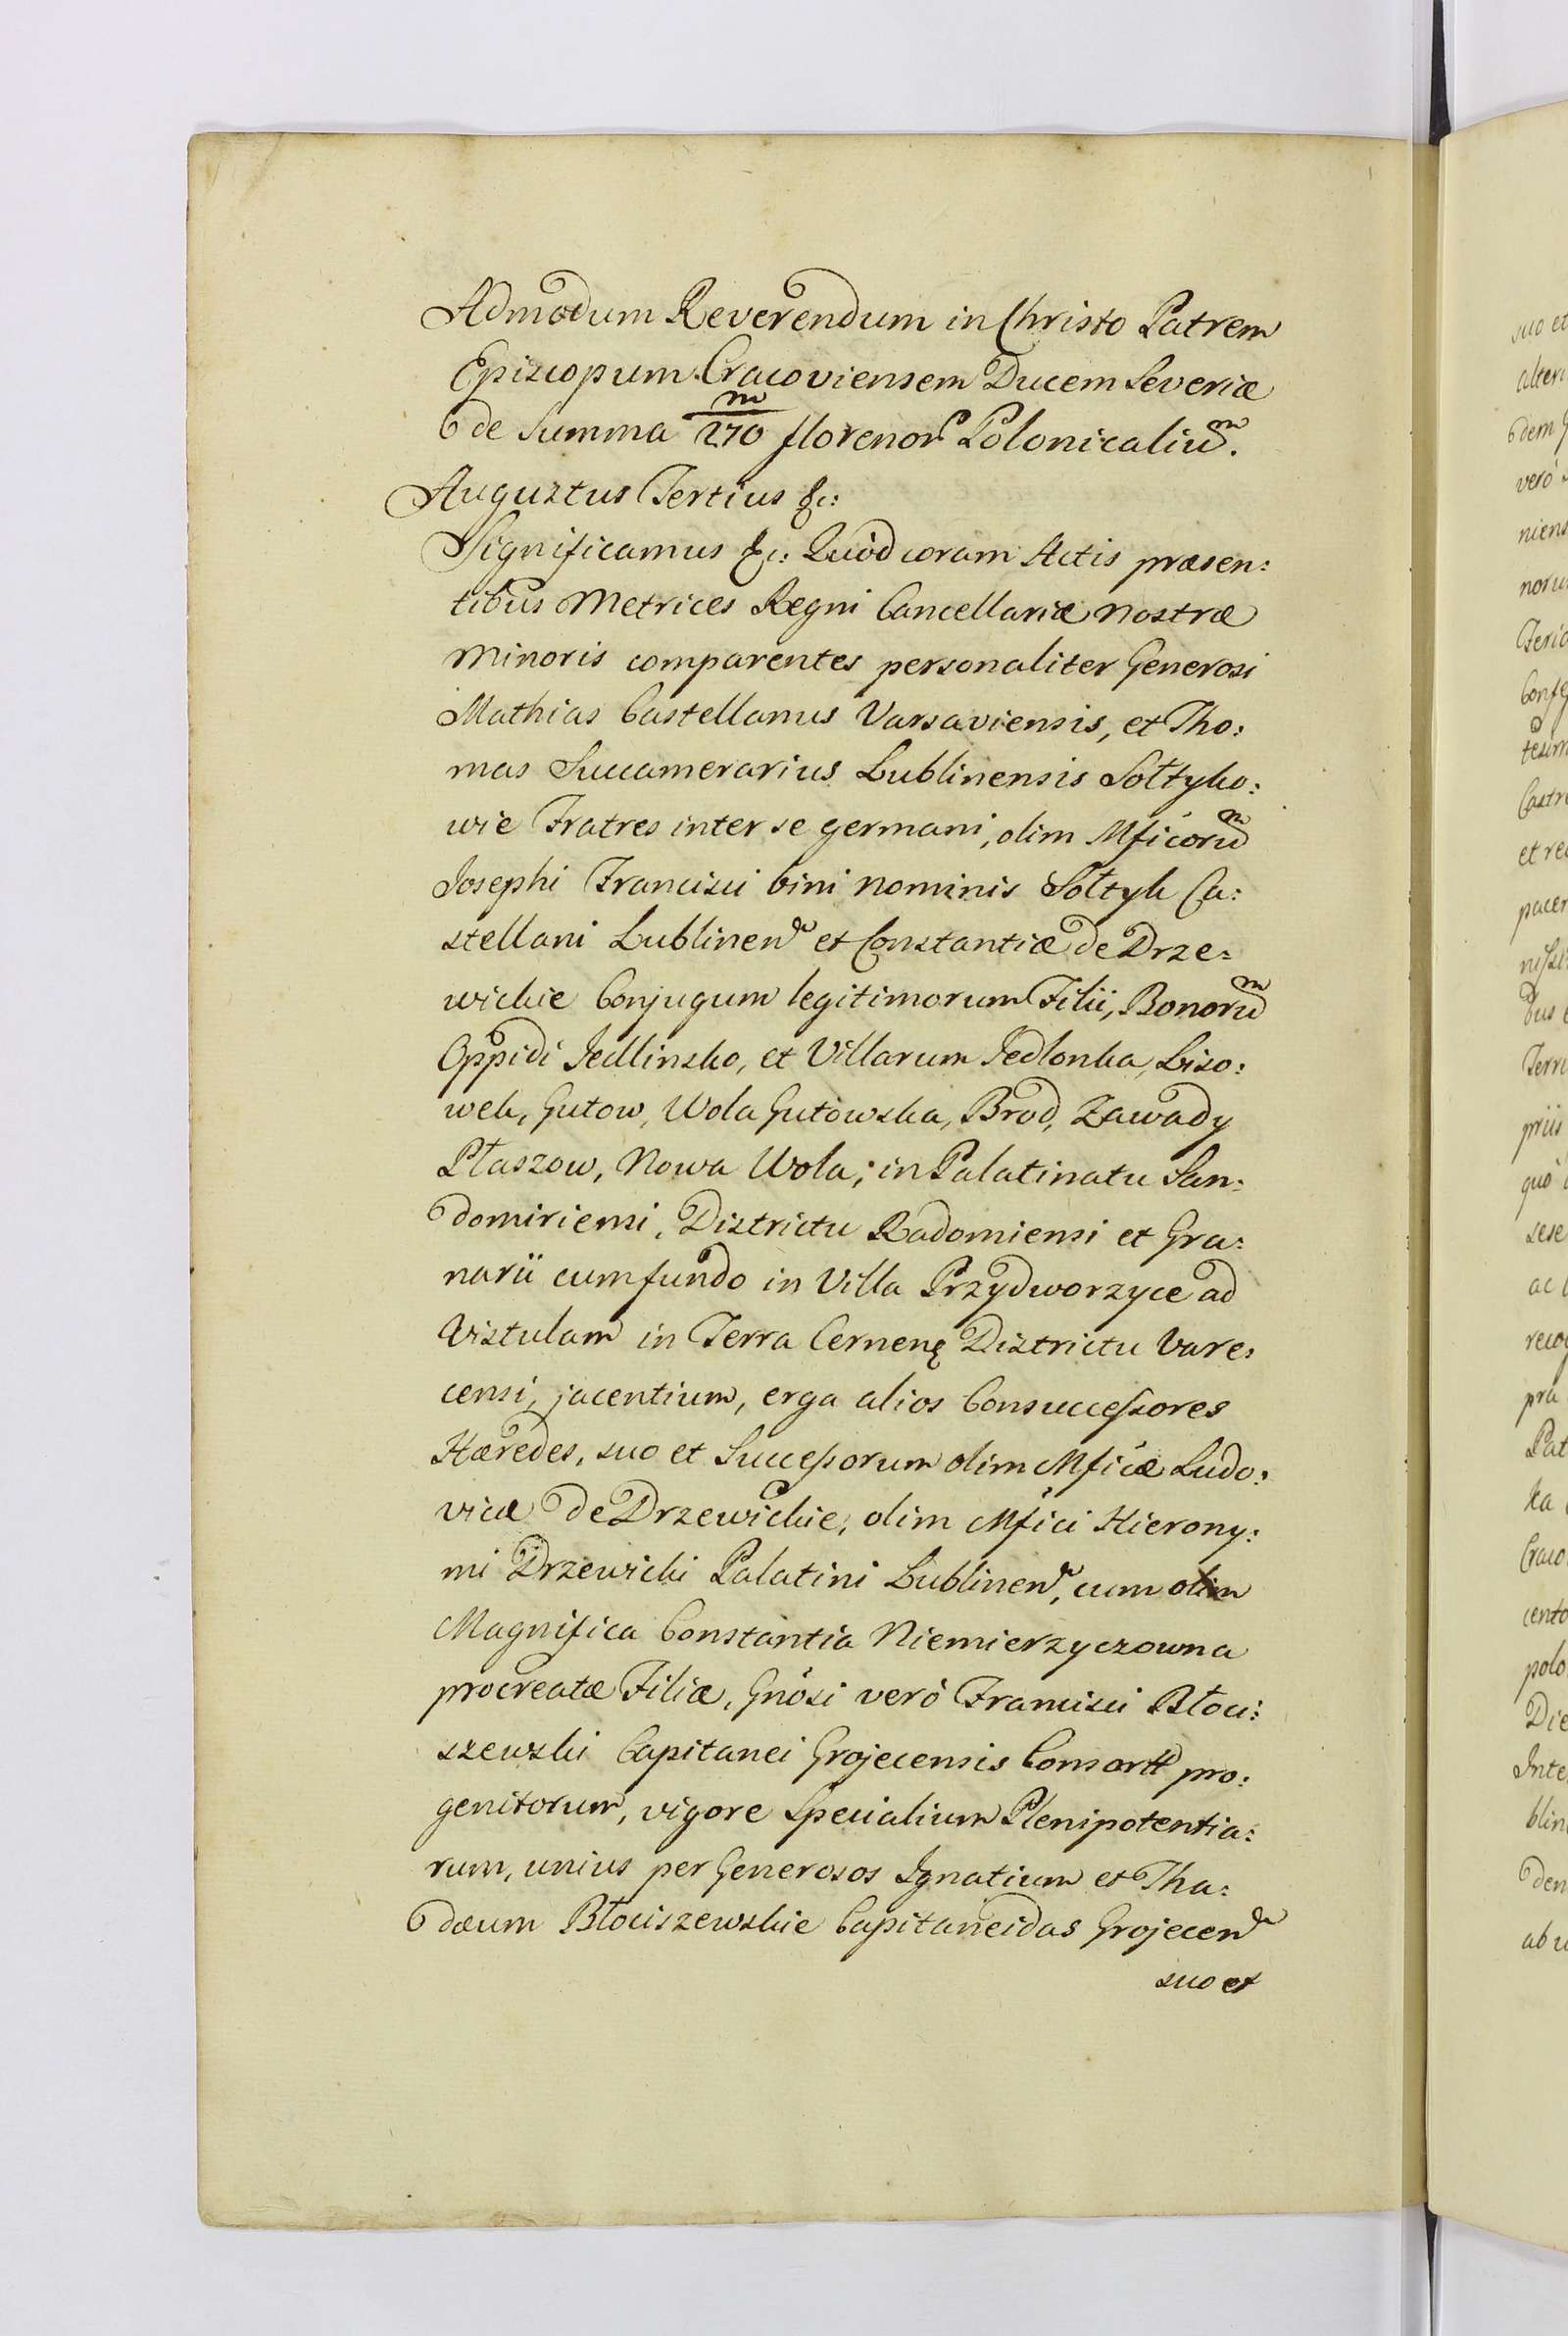 Admodum Reverendum in Christo Patrem
Episcopum Cracoviensem Ducem Severiæ
de Summa 270 m florenor Polonicaliũm.
Augustus Tertius &c:
Significamus &c: Quòd coram Actis præsen:
tibus Metrices Regni Cancellariæ nostræ
Minoris comparentes personaliter Generosi
Mathias Castellanus Varsaviensis, et Tho:
mas Succamerarius Lublinensis Sołtyko:
wie Fratres inter se germani, olim Mficorum
Josephi Francisci bini nominis Sołtyk Ca:
stellani Lublinen et Constantiæ de Drze:
wickie Conjugum legitimorum Filii, Bonorum
Oppidi Jedlinsko, et Villarum Jedlonka, Liso:
wek, Gutow, Wola Gutowska, Brod, Zawady
Płaszow, Nowa Wola; in Palatinatu San:
domiriensi, Districtu Radomiensi et Gra:
narii cum fundo in Villa Przydworzyce ad
Vistulam in Terra Cernen Districtu Vare:
censi, jacentium, erga alios Consuccessores
Hæredes, suo et Successorum olim Mficæ Ludo:
vicæ de Drzewickie, olim Mfici Hierony:
mi Drzewicki Palatini Lublinen, cum olim
Magnifica Constantia Niemierzyczowna
procreatæ Filiæ, Gnosi verò Francisci Błoci:
szewski Capitanei Grojecensis Consortt pro:
genitorum, vigore Specialium Plenipotentia:
rum, unius per Generosos Ignatium et Tha:
dæum Błociszewskie Capitaneidas Grojecen
suo et
suo et
dem
verò
niens